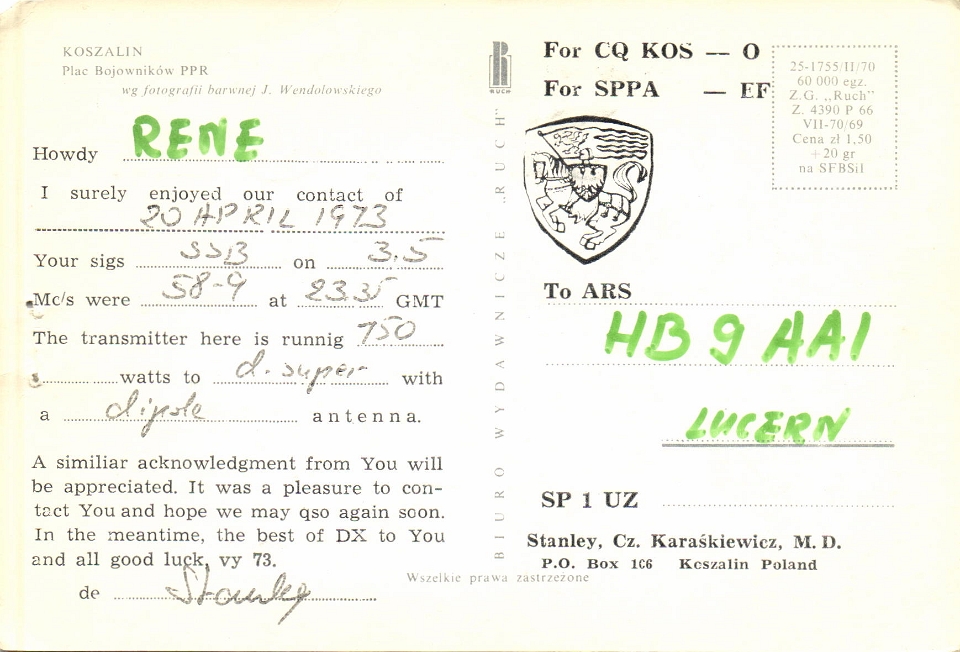 KOSZALIN
Plac Bojowników PPR
wg fotografii barwnej J. Wendolowskiego
Howdy RENE
I surely enjoyed our contact of
20 APRIL 1973
Your sigs SSB on 3.5
Mc/s were 58-9 at 2335 GMT
The transmitter here is runnig 750
watts to d. super with
a dipole antenna.
A similiar acknowledgment from You will
be appreciated. It was a pleasure to con-
tact You and hope we may qso again soon.
In the meantime, the best of DX to You
and all good luck, vy 73.
de Stanley
RUCH
BIURO WYDAWNICZE „RUCH"
Wszelkie prawa zastrzeżone
For CQ KOS — O
For SPPA — EF
25-1755/II/70
60 000 egz.
Z.G. „Ruch"
Z. 4390 P 66
VII-70/69
Cena zł 1,50
+20 gr
na SFBSiI
To ARS
HB 9 AAI
LUCERN
SP 1 UZ
Stanley, Cz. Karaśkiewicz, M. D.
P.O. Box 106 Koszalin Poland